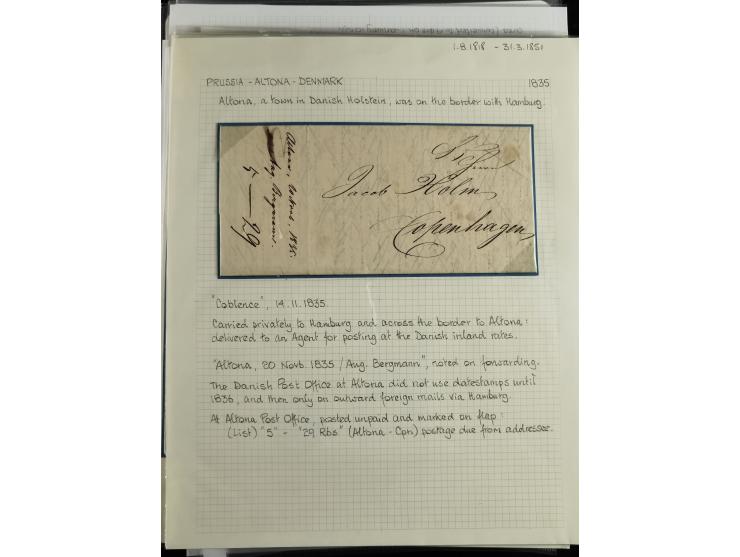 1.8.1818 - 31.3.1851
PRUSSIA - ALTONA - DENMARK 1835
Altona, a town in Danish Holstein, was on the border with Hamburg.
Jacob Holm
Copenhagen
Altona, 20 Novb. 1835.
Aug. Bergmann.
5 — 29
"Coblence", 14.11.1835.
Carried privately to Hamburg and across the border to Altona:
delivered to an Agent for posting at the Danish inland rates.
"Altona, 20 Novb. 1835 / Aug. Bergmann", noted on forwarding.
The Danish Post Office at Altona did not use datestamps until
1836, and then only on outward foreign mails via Hamburg.
At Altona Post Office, posted unpaid and marked on flap:
(List) "5" - "29 Rbs" (Altona - Cpn) postage due from addressee.